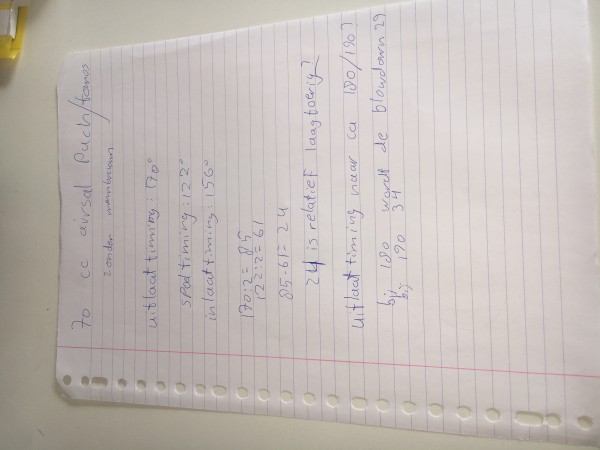 70 cc airsal Puch/tomos
zonder membraan
uitlaat timing: 170°
spoel timing: 122°
inlaat timing: 156°
170:2= 85
122:2= 61
85-61= 24
24 is relatief laagtoerig?
Uitlaat timing naar ca 180/190?
bij 180 wordt de blowdown 29
bij 190 34